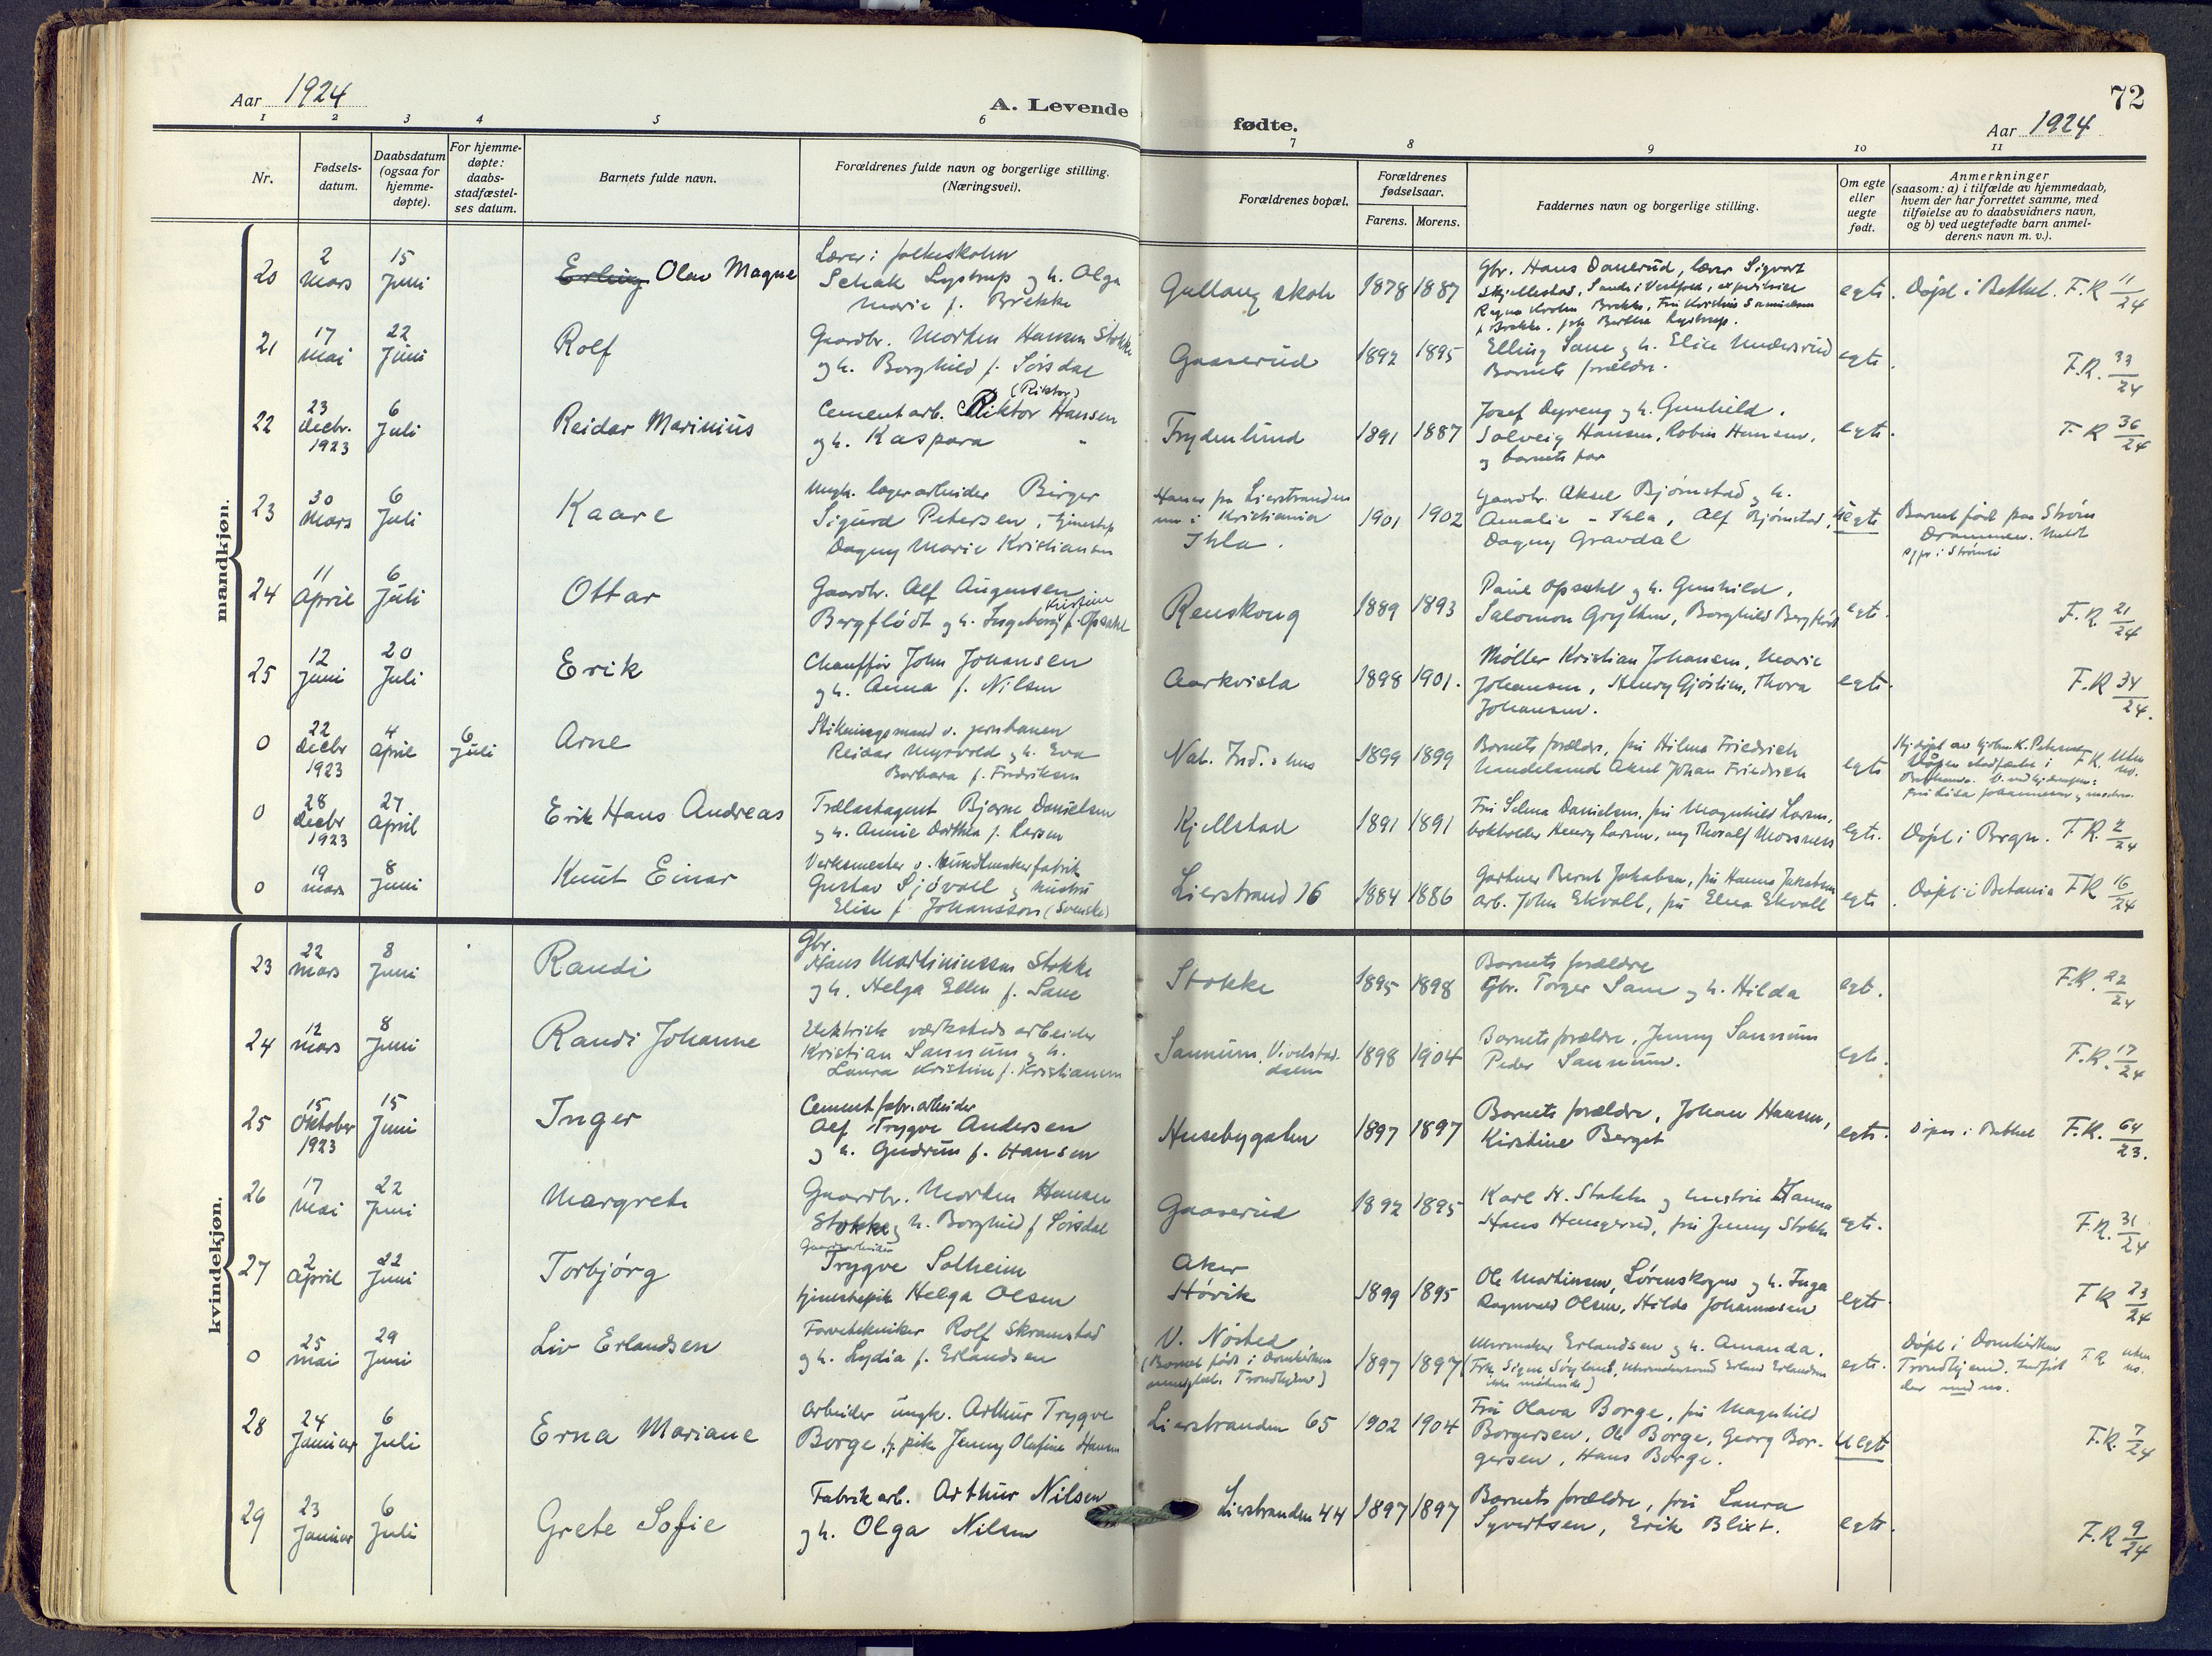 Aar 1924
A. Levende
fødte.
Aar 1924
72
1 2 3 4 5 6 7 8 9 10 11
Nr.
Fødsels-
datum.
Daabsdatum
(ogsaa for
hjemme-
døpte).
For hjemme-
døpte:
daabs-
stadfæstel-
ses datum.
Barnets fulde navn.
Forældrenes fulde navn og borgerlige stilling.
(Næringsvei).
Forældrenes bopæl.
Forældrenes
fødselsaar.
Farens. Morens.
Faddernes navn og borgerlige stilling.
Om egte
eller
uegte
født.
Anmerkninger
(saasom: a) i tilfælde av hjemmedaab,
hvem der har forrettet samme, med
tilføielse av to daabsvidners navn,
og b) ved uegtefødte barn anmel-
derens navn m. v.).
mandkjøn.
20
2
Mars
15
Juni
Erling Olav Magne
Lærer i folkeskolen
Schak Lystrup og h. Olga
Marie f. Brekke
Gullaug skole
1878 1887
Gbr. Hans Danerud, lærer Sigvart
egte. Døpt i Bethel. F.R 11/24
21
17
Mai
22
Juni
Rolf
Gaardbr. Morten Hansen Stokke
og h. Borghild f. Sørsdal
Gaaserud
1892 1895
Elling Sane og h. Elise Undersrud
Barnets forældre.
egte.
F.R. 33/24
22
23
Decbr.
1923
6
Juli
Reidar Marinius
(Riktor)
Cementarb. Riktor Hansen
og h. Kaspara "
Frydenlund
1891 1887
Josef Dyreng og h. Gunhild.
Solveig Hansen, Robin Hansen,
og barnets far
egte.
F.R 36/24
23
30
Mars
6
Juli
Kaare
Ungk. lagerarbeider Birger
Sigurd Petersen, tjenestep
Dagny Marie Kristiansen
Hans fra Lierstranden
nu i Kristiania
Ihla.
1901 1902
Gaardbr. Aksel Bjørnstad og h.
Amalie - Ihla, Alf Bjørnstad,
Dagny Gravdal
uegte
Barnet født paa Strøm
Drammen. Meldt
24
11
April
6
Juli
Ottar
Gaardbr. Alf Augensen
Kristine
Bergflødt og h. Ingeborg f. Opsahl
Renskoug
1889 1893
Paul Opsahl og h. Gunhild.
Salomon Grythen, Borghild Bergflødt
egte.
F.R. 21/24
25
12
Juni
20
Juli
Erik
Chauffør John Johansen
og h. Anna f. Nilsen
Aarkvisla
1898 1901.
Møller Kristian Johansen, Marie
Johansen, Henry Gjøstim, Thora
Johansen.
egte.
F.R 34/24.
0
22
Decbr
1923
4
April
6
Juli
Arne
Stikningsmand v. jernbanen
Reidar Myrvold og h. Eva
Barbara f. Fredriksen
Nat. Ind.s hus
1899 1899
Barnets forældre, fru Hilma Friedrich
Handelsmd Aksel Johan Friedrich
egte
F.R. uten no.
0
28
Decbr
1923
27
April
Erik Hans Andreas
Trælastagent Bjarne Danielsen
og h. Annie Dorthea f. Larsen
Kjellstad
1891 1891
Fru Selma Danielsen, fru Magnhild Larsen,
bokholder Henry Larsen, ung Thoralf Mossness
egte. Døpt i Brgn. F.R. 2/24
0
19
mars
8
Juni
Knut Einar
Verksmester v. Mundlmakerfabrik
Gustav Sjøvall og hustru
Elise f. Johansson (Svenske)
Lierstrand 16
1884 1886
Gartner Bernt Jakobsen, fru Hanna Jakobsen
arb. John Ekvall, fru Elna Ekvall
egte. Døpt i Betania F.R 16/24
kvindekjøn.
23
22
mars
8
Juni
Randi
Gbr.
Hans Martiniussen Stokke
og h. Helga Ellen f. Sane
Stokke
1895 1898
Barnets forældre
Gbr. Torger Sane og h. Hilda
egt.
F.R. 22/24
24
12
mars
8
Juni
Randi Johanne
Elektrisk værkstedsarbeider
Kristian Sannum og h.
Laura Kristine f. Kristiansen
Sannum, Vivelstad-
dalen
1898 1904
Barnets forældre, Jenny Sannum
Peder Sannum.
egte.
F.R. 17/24
25
15
Oktober
1923
15
Juni
Inger
Cementfabr.arbeider
Alf Trygve Andersen
og h. Gudrun f. Hansen
Husebygaten
1897 1897
Barnets forældre, Johan Hansen,
Kirstine Berget
egte. Døpt i Bethel F.R. 64/23.
26
17
Mai
22
Juni
Margrete
Gaardbr. Morten Hansen
Stokke og h. Borghild f. Sørsdal
Gaaserud
1892 1895
Karl H. Stokke og hustru Hanna
Hans Hengerud, fru Jenny Stokke
egte.
F.R. 31/24
27
2
April
22
Juni
Torbjørg
Gaardsarbeider
Trygve Solheim
tjenestepik Helga Olsen
Aker
Høvik
1899 1895
Ole Martinsen, Lørenskogen og h. Inga
Ragnvald Olsen, Hilda Johannesen
egte.
F.R 23/24
0
25
mai
29
Juni
Liv Erlandsen
Farvetekniker Rolf Skramstad
og h. Lydia f. Erlandsen
V. Nøsted
(Barnet født i Domkirken
menighet Trondhjem)
1897 1897
Urmaker Erlandsen og h. Amanda.
egte. Døpt i Domkirken
Trondhjem. Indført
der med no.
F.R. uten no.
28
24
Januar
6
Juli
Erna Mariane
Arbeider ungk. Arthur Trygve
Borge og pike Jenny Olufine Hansen
Lierstranden 65
1902 1904
Fru Olava Borge, fru Magnhild
Borgersen, Ole Borge, Georg Bor-
gersen, Hans Borge.
Uegte
F.R. 7/24
29
23
Januar
6
Juli
Grete Sofie
Fabrikarb. Arthur Nilsen
og h. Olga Nilsen
Lierstranden 44
1897 1897
Barnets forældre, fru Laura
Syvertsen, Erik Blixt.
egte.
F.R 9/24